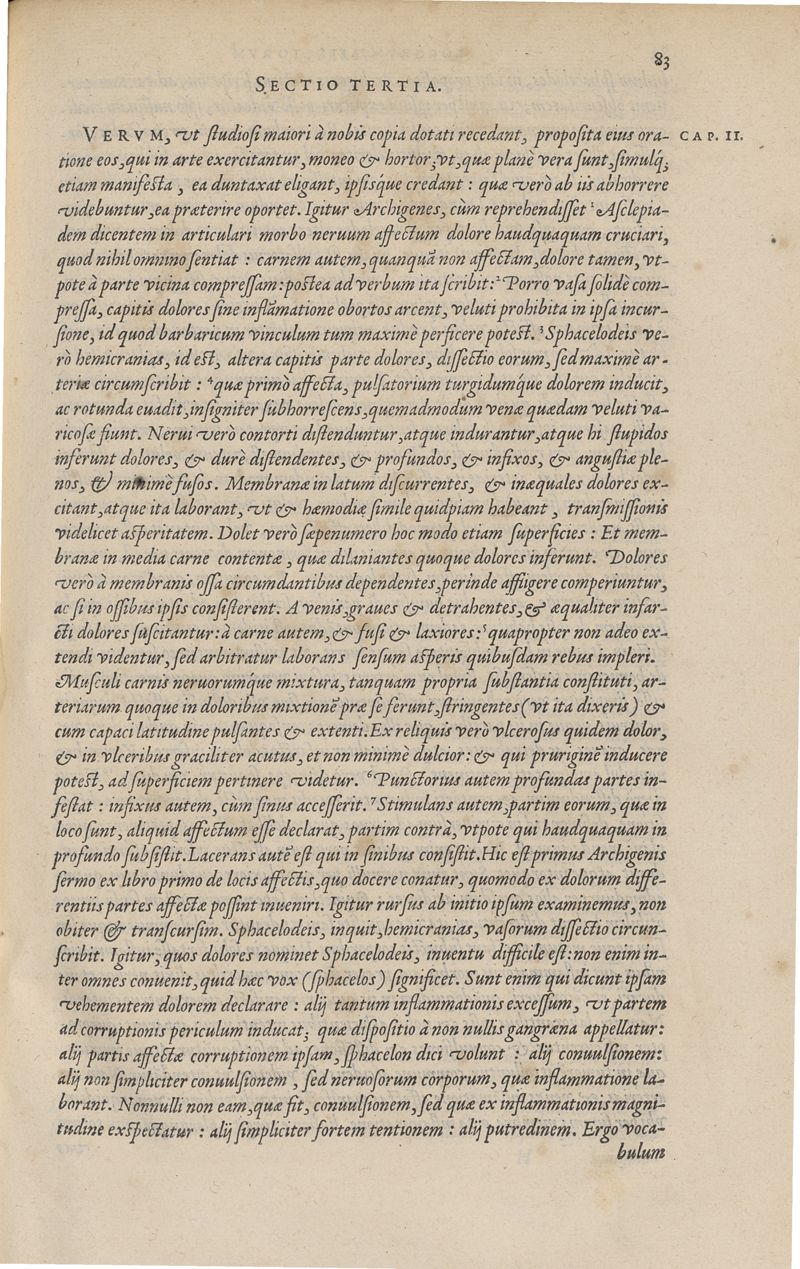 83
SECTIO TERTIA.
VERVM, vt studiosi maiori à nobis copia dotati recedant, proposita eius ora- CAP. II.
tione eos, qui in arte exercitantur, moneo & hortor, vt, quæ planè vera sunt, simulq́;
etiam manifesta, ea duntaxat eligant, ipsisq́ue credant : quæ verò ab iis abhorrere
videbuntur, ea præterire oportet. Igitur Archigenes, cùm reprehendisset ¹Asclepia-
dem dicentem in articulari morbo neruum affectum dolore haudquaquam cruciari,
quod nihil omnino sentiat : carnem autem, quanquā non affectam, dolore tamen, vt-
pote à parte vicina compressam: postea ad verbum ita scribit:²Porro vasa solidè com-
pressa, capitis dolores sine inflāmatione obortos arcent, veluti prohibita in ipsa incur-
sione, id quod barbaricum vinculum tum maximè perficere potest. ³Sphacelodeis ve-
rò hemicranias, id est, altera capitis parte dolores, dissectio eorum, sed maximè ar-
teriæ circumscribit : ⁴quæ primò affecta, pulsatorium turgidumq́ue dolorem inducit,
ac rotunda euadit, insigniter subhorrescens, quemadmodum venæ quædam veluti va-
ricosæ fiunt. Nerui verò contorti distenduntur, atque indurantur, atque hi stupidos
inferunt dolores, & durè distendentes, & profundos, & infixos, & angustiæ ple-
nos, & minimè fusos. Membranæ in latum discurrentes, & inæquales dolores ex-
citant, atque ita laborant, vt & hæmodiæ simile quidpiam habeant, transmissionis
videlicet asperitatem. Dolet verò sæpenumero hoc modo etiam superficies : Et mem-
branæ in media carne contentæ, quæ dilaniantes quoque dolores inferunt. Dolores
verò à membranis ossa circumdantibus dependentes, perinde affligere comperiuntur,
ac si in ossibus ipsis consisterent. A venis, graues & detrahentes, & æqualiter infar-
cti dolores suscitantur: à carne autem, & fusi & laxiores:⁵quapropter non adeo ex-
tendi videntur, sed arbitratur laborans sensum asperis quibusdam rebus impleri.
Musculi carnis neruorumq́ue mixtura, tanquam propria substantia constituti, ar-
teriarum quoque in doloribus mixtionē præ se ferunt, stringentes (vt ita dixeris) &
cum capaci latitudine pulsantes & extenti. Ex reliquis verò vlcerosus quidem dolor,
& in vlceribus graciliter acutus, et non minimè dulcior: & qui pruriginē inducere
potest, ad superficiem pertinere videtur. ⁶Punctorius autem profundas partes in-
festat : infixus autem, cùm sinus accesserit. ⁷Stimulans autem, partim eorum, quæ in
loco sunt, aliquid affectum esse declarat, partim contrà, vtpote qui haudquaquam in
profundo subsistit. Lacerans autē est qui in sinibus consistit. Hic est primus Archigenis
sermo ex libro primo de locis affectis, quo docere conatur, quomodo ex dolorum diffe-
rentiis partes affectæ possint inueniri. Igitur rursus ab initio ipsum examinemus, non
obiter & transcursim. Sphacelodeis, inquit, hemicranias, vasorum dissectio circun-
scribit. Igitur, quos dolores nominet Sphacelodeis, inuentu difficile est: non enim in-
ter omnes conuenit, quid hæc vox (sphacelos) significet. Sunt enim qui dicunt ipsam
vehementem dolorem declarare : alij tantum inflammationis excessum, vt partem
ad corruptionis periculum inducat; quæ dispositio à non nullis gangræna appellatur:
alij partis affectæ corruptionem ipsam, sphacelon dici volunt : alij conuulsionem:
alij non simpliciter conuulsionem, sed neruosorum corporum, quæ inflammatione la-
borant. Nonnulli non eam, quæ fit, conuulsionem, sed quæ ex inflammationis magni-
tudine exspectatur : alij simpliciter fortem tentionem : alij putredinem. Ergo voca-
bulum